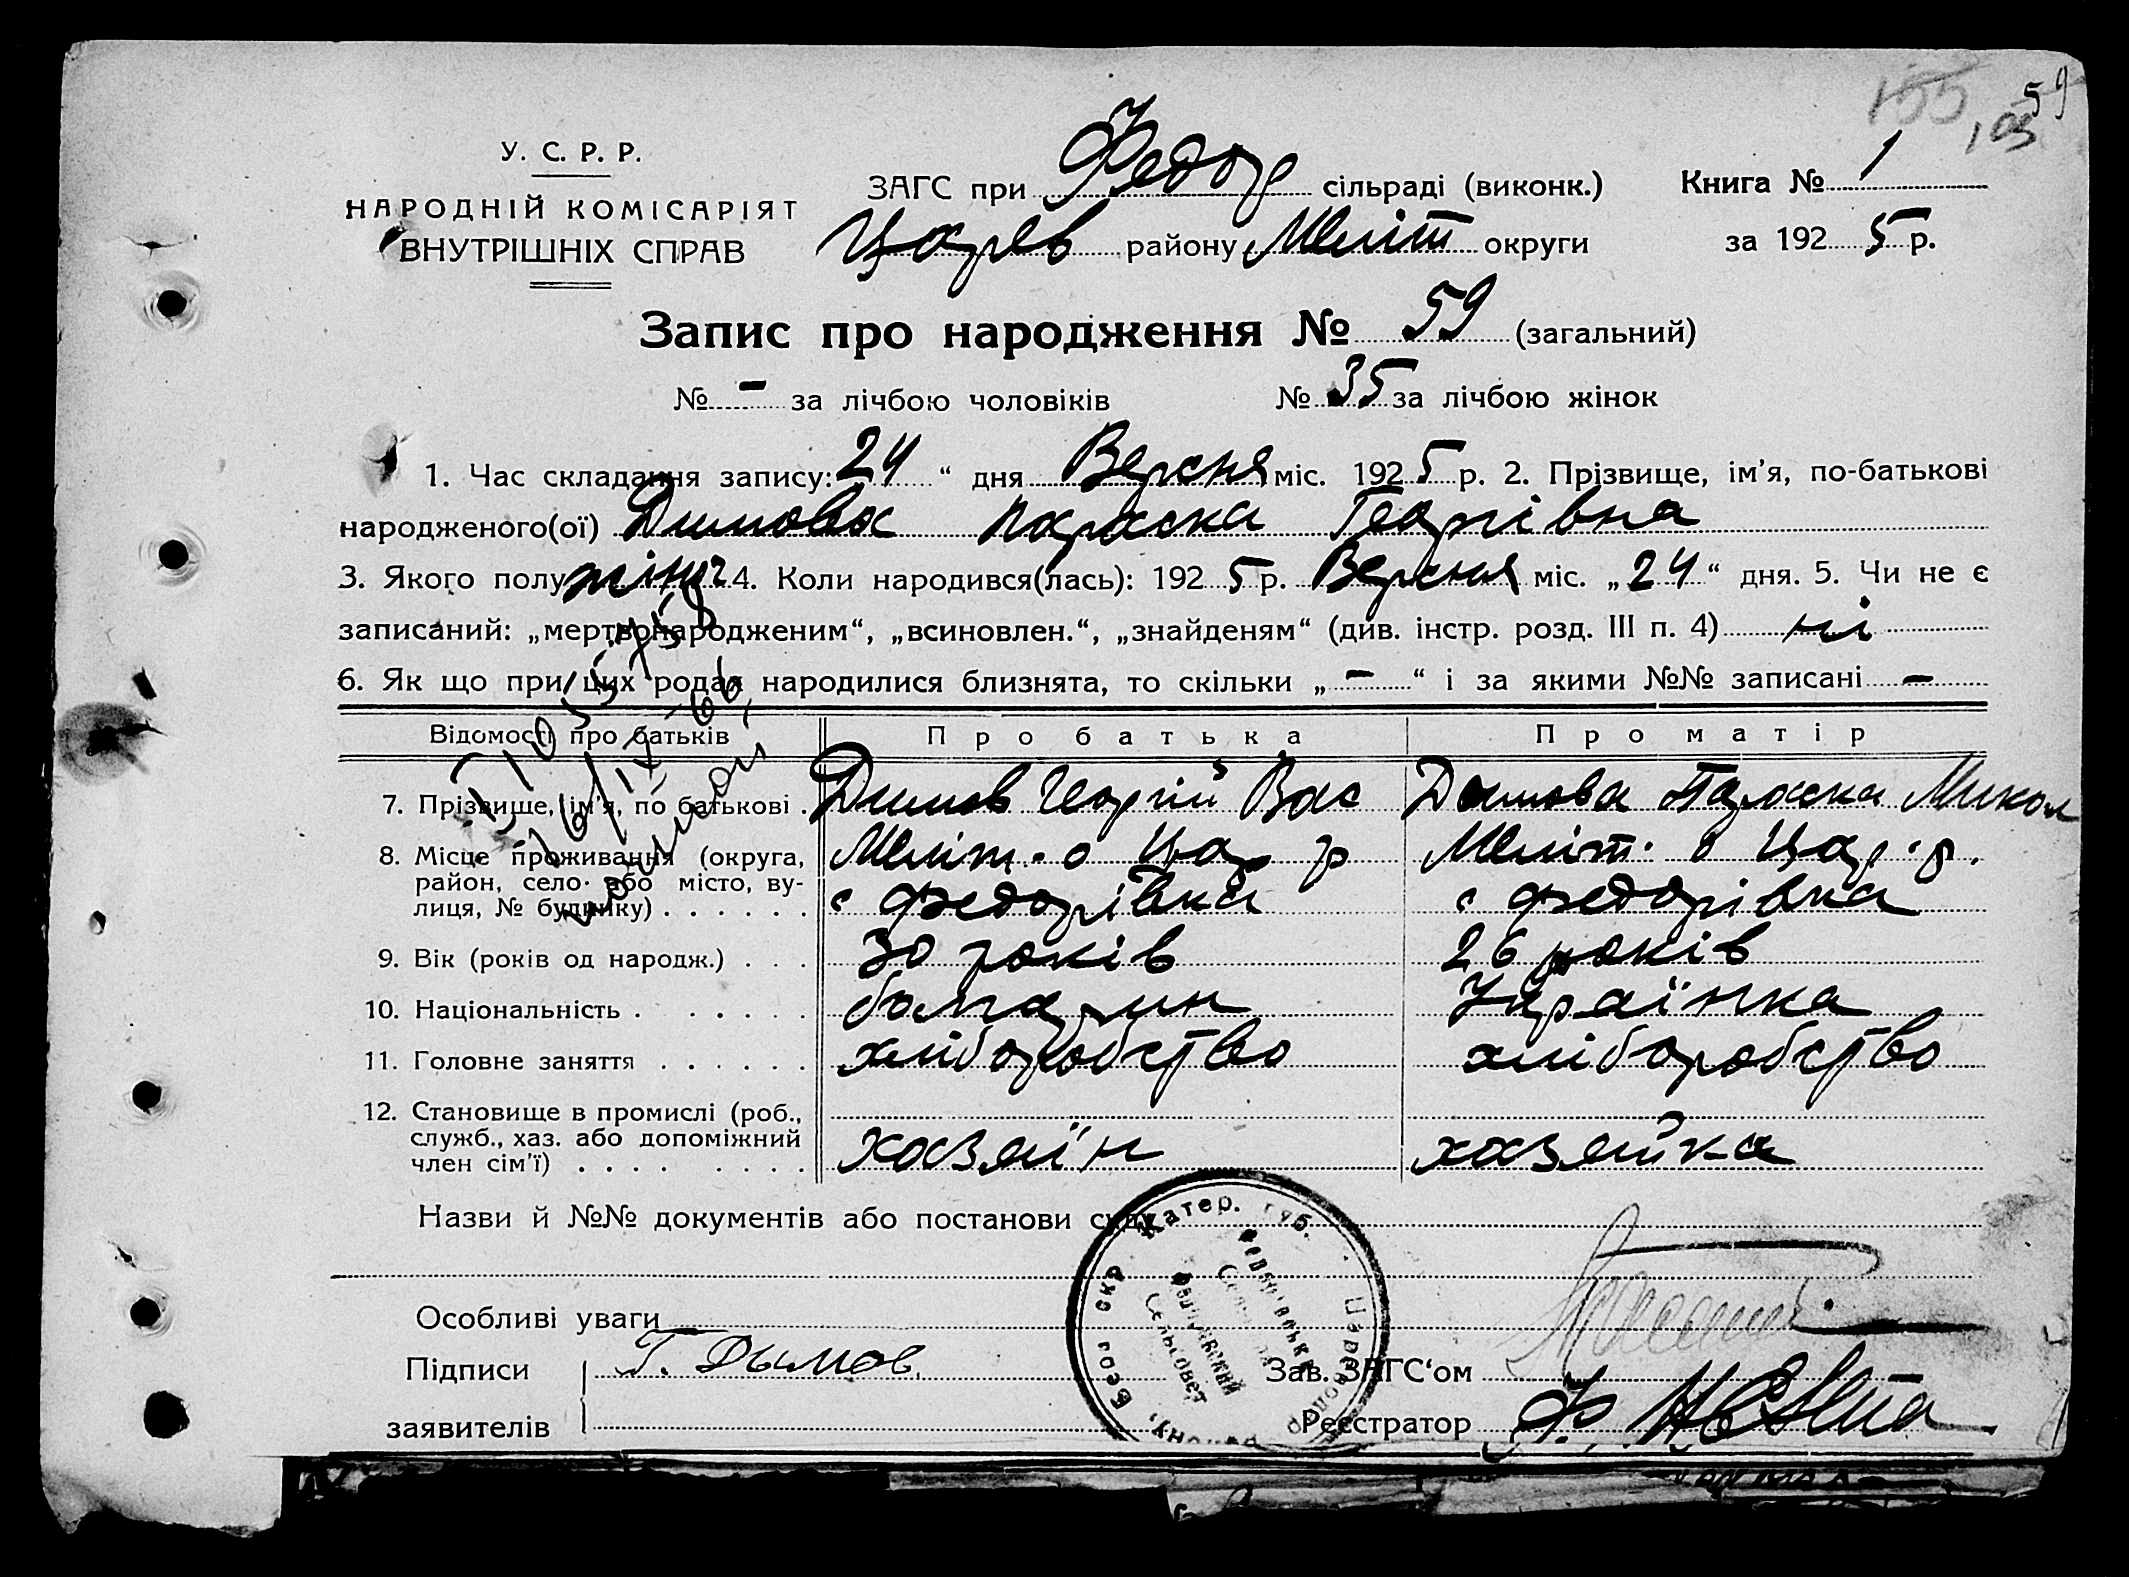 155 59
103
У. С. Р. Р.
НАРОДНІЙ КОМІСАРІЯТ
ВНУТРІШНІХ СПРАВ
ЗАГС при Федор сільраді (виконк.) Книга № 1
Царев району Меліт округи за 1925 р.
Запис про народження № 59 (загальний)
№ - за лічбою чоловіків № 35 за лічбою жінок
1. Час складання запису: 24 “ дня Версня міс. 1925 р. 2. Прізвище, ім'я, по-батькові
народженого(ої) Димова Параска Георгівна
3. Якого полу жіноч 4. Коли народився(лась): 1925 р. Версня міс. „24“ дня. 5. Чи не є
записаний: „мертвонародженим“, „всиновлен.“, „знайденям“ (див. інстр. розд. III п. 4) ні
6. Як що при цих родах народилися близнята, то скільки „-“ і за якими №№ записані -
Відомості про батьків Про батька Про матір
7. Прізвище, ім'я, по батькові . Димов Георгій Вас Димова Параска Микол
8. Місце проживання (округа, Меліт. о Цар р Меліт. о Цар. р.
район, село або місто, ву-
лиця, № будинку) . . . . . . с Федорівка с Федорівка
9. Вік (років од народж.) . . . 30 років 26 років
10. Національність . . . . . . болгарин Українка
11. Головне заняття . . . . . . хліборобство хліборобство
12. Становище в промислі (роб.,
служб., хаз. або допоміжний
член сім'ї) . . . . . . . . хазяїн хазяйка
Назви й №№ документів або постанови суду
Катер. губ.
Бердянський
Сельсовет
Особливі уваги
Підписи Г. Дымов. Зав. ЗАГС'ом
заявителів Реєстратор